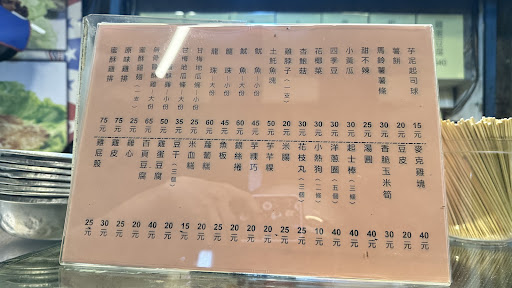 芋泥起司球 15元
薯餅 20元
馬鈴薯薯條 30元
甜不辣 25元
小黃瓜 30元
四季豆 30元
花椰菜 30元
杏鮑菇 30元
雞脖子(一支) 20元
土魠魚塊 50元
魷魚-小份 45元
魷魚-大份 60元
龍珠-小份 45元
龍珠-大份 60元
甘梅地瓜條-小份 25元
甘梅地瓜條-大份 35元
小份 50元
大份 65元
蜜酥雞翅(一支) 25元
原味雞排 75元
蜜酥雞排 75元
麥克雞塊 40元
豆皮 20元
香脆玉米筍 30元
湯圓 40元
起士棒(三條) 40元
洋蔥圈(五個) 40元
小熱狗(二條) 10元
花枝丸(三個) 25元
米腸 25元
芋粿 20元
芋粿巧 20元
銀絲捲 20元
魚板 20元
蘿蔔糕 25元
米血糕 20元
豆干(三個) 20元
雞蛋豆腐 40元
百頁豆腐 20元
雞心 25元
雞皮 30元
雞屁股 25元